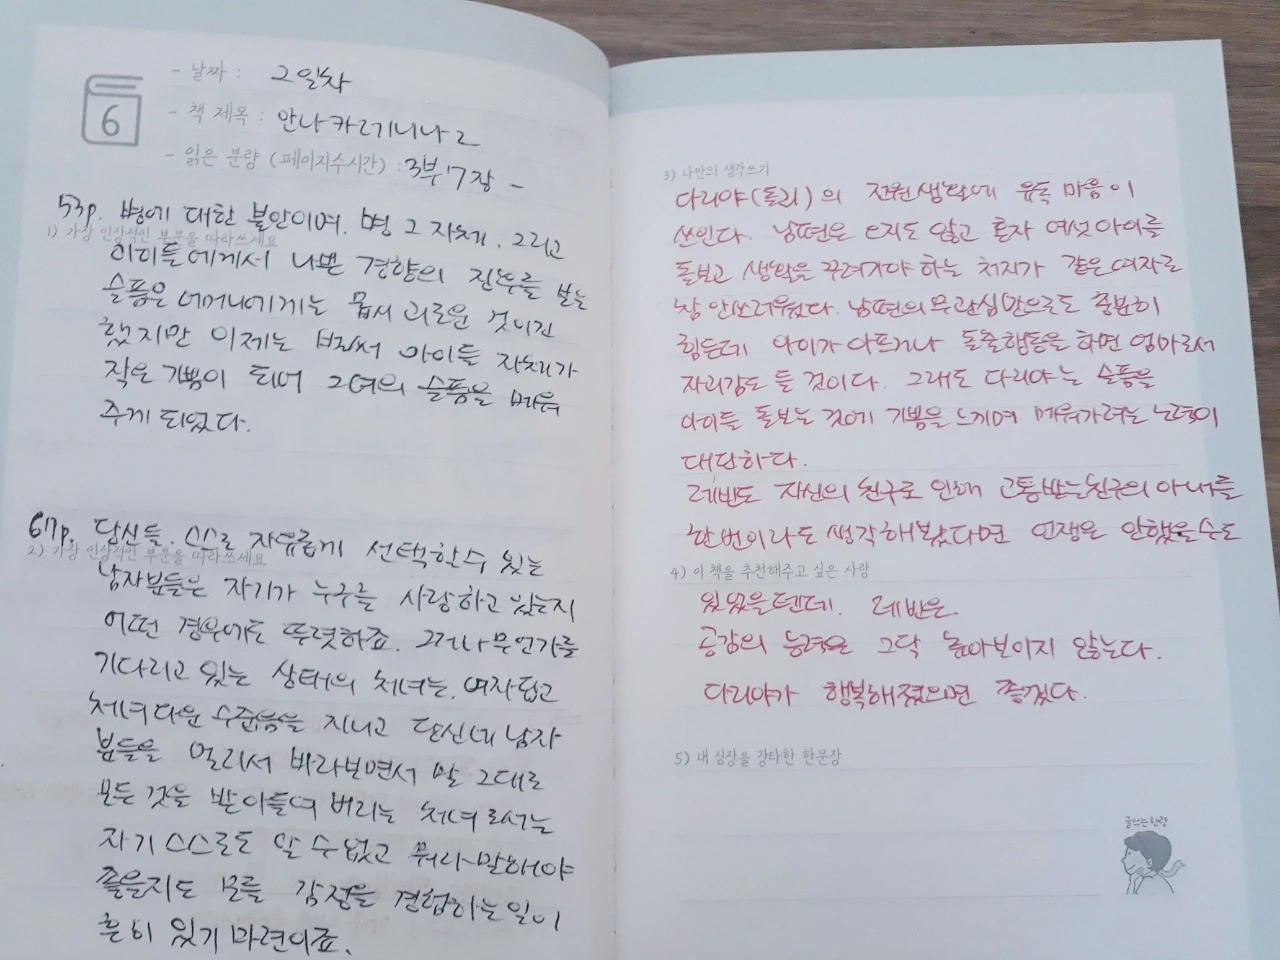 6
- 날짜 : 2일차
- 책 제목 : 안나 카레니나 2
- 읽은 분량 (페이지수시간) : 3부 7장 -
53p. 병에 대한 불안이며, 병 그 자체, 그리고
1) 가장 인상적인 부분을 따라쓰세요
아이들에게서 나쁜 경향의 징후를 보는
슬픔은 어머니에게는 몹시 괴로운 것이긴
했지만 이제는 벌써 아이들 자체가
작은 기쁨이 되어 그녀의 슬픔을 메워
주게 되었다.
67p. 당신들, 스스로 자유롭게 선택할 수 있는
2) 가장 인상적인 부분을 따라쓰세요
남자분들은 자기가 누구를 사랑하고 있는지
어떤 경우에도 뚜렷하죠. 그러나 무언가를
기다리고 있는 상태의 처녀는, 여자답고
처녀다운 수줍음을 지니고 당신네 남자
분들을 멀리서 바라보면서 말 그대로
모든 것을 받아들여 버리는 처녀로서는
자기 스스로도 알 수 없고 뭐라 말해야
좋을지도 모를 감정을 경험하는 일이
흔히 있기 마련이죠.
3) 나만의 생각쓰기
다리야(돌리)의 전원생활에 유독 마음이
쓰인다. 남편은 오지도 않고 혼자 여섯 아이를
돌보고 생활을 꾸려가야 하는 처지가 같은 여자로
참 안쓰러웠다. 남편의 무관심만으로도 충분히
힘든데 아이가 아프거나 돌출행동을 하면 엄마로서
자괴감도 들 것이다. 그래도 다리야는 슬픔을
아이들 돌보는 것에 기쁨을 느끼며 메워가려는 노력이
대단하다.
레빈도 자신의 친구로 인해 고통받는 친구의 아내를
한번이라도 생각해봤다면 언쟁은 안했을 수도
4) 이 책을 추천해주고 싶은 사람
있었을텐데. 레빈은
공감의 능력은 그닥 높아보이지 않는다.
다리야가 행복해졌으면 좋겠다.
5) 내 심장을 강타한 한문장
글쓰는한량